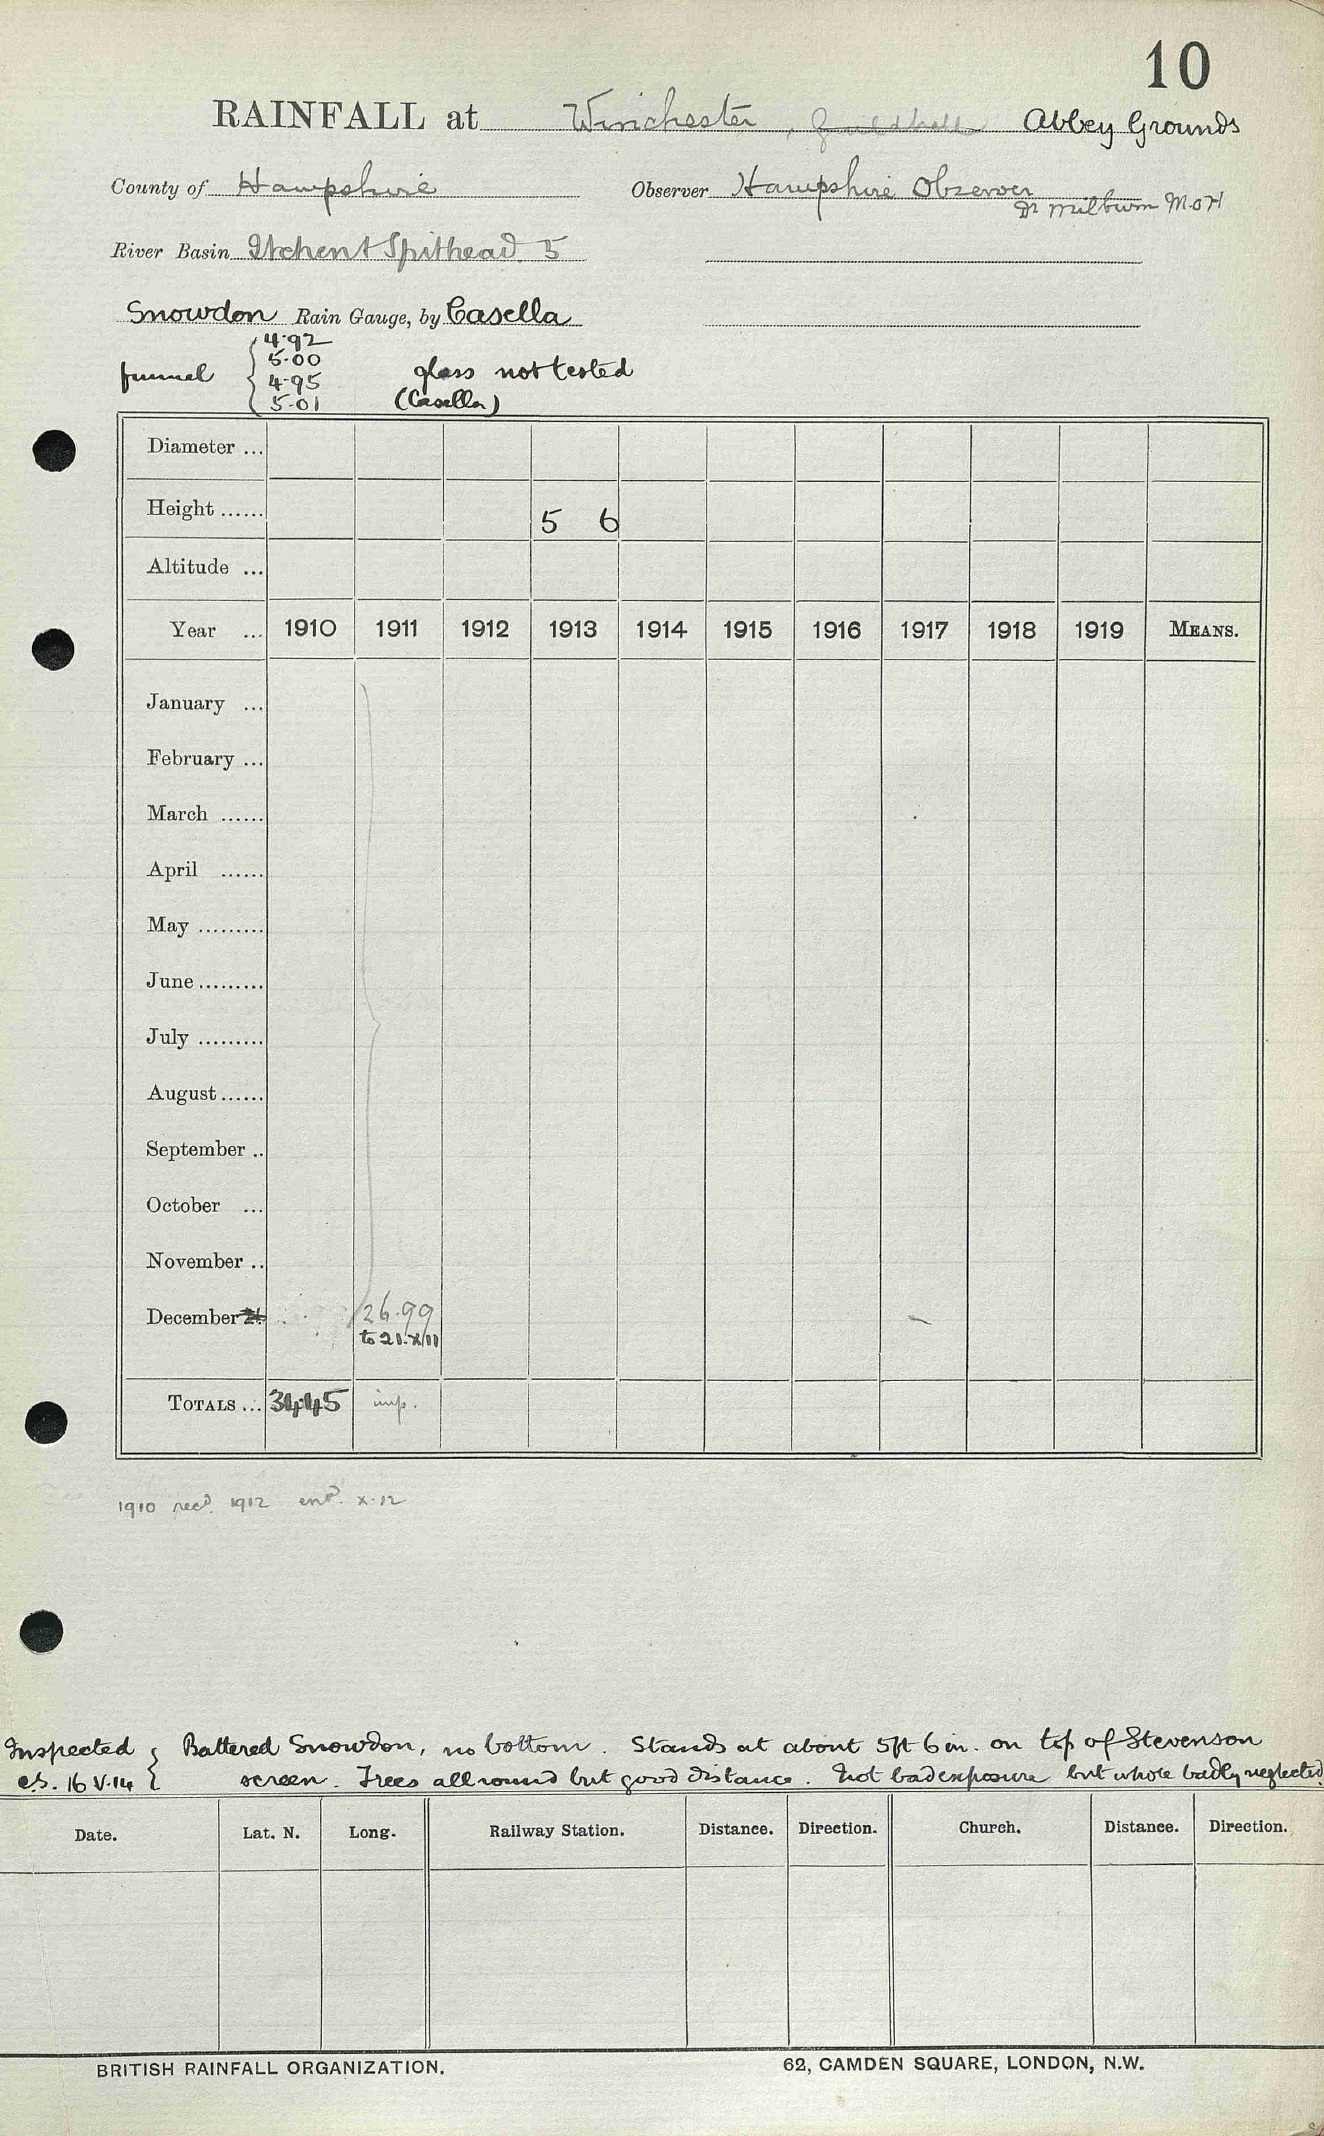 10
RAINFALL at Winchester, Guildhall Abbey Grounds
County of Hampshire Observer Hampshire Observer
Dr Milburn M.O.H
River Basin Itchen & Spithead 5
Snowdon Rain Gauge, by Casella
funnel { 4.92
5.00
4.95
5.01
glass not tested
(Casella)
Diameter ...
Height ...... 5 6
Altitude ...
Year ... 1910 1911 1912 1913 1914 1915 1916 1917 1918 1919 MEANS.
January ...
February ...
March ......
April ......
May .........
June .........
July .........
August ......
September ..
October ...
November ..
December 26.99
to 21.X11
TOTALS ... 34.45 inp.
1910 recd. 1912 entd. X.12
Inspected { Battered Snowdon, no bottom. Stands at about 5ft 6in. on top of Stevenson
16 V.14 screen. Trees all round but good distance. Not bad exposure but whole badly neglected
Date. Lat. N. Long. Railway Station. Distance. Direction. Church. Distance. Direction.
BRITISH RAINFALL ORGANIZATION. 62, CAMDEN SQUARE, LONDON, N.W.